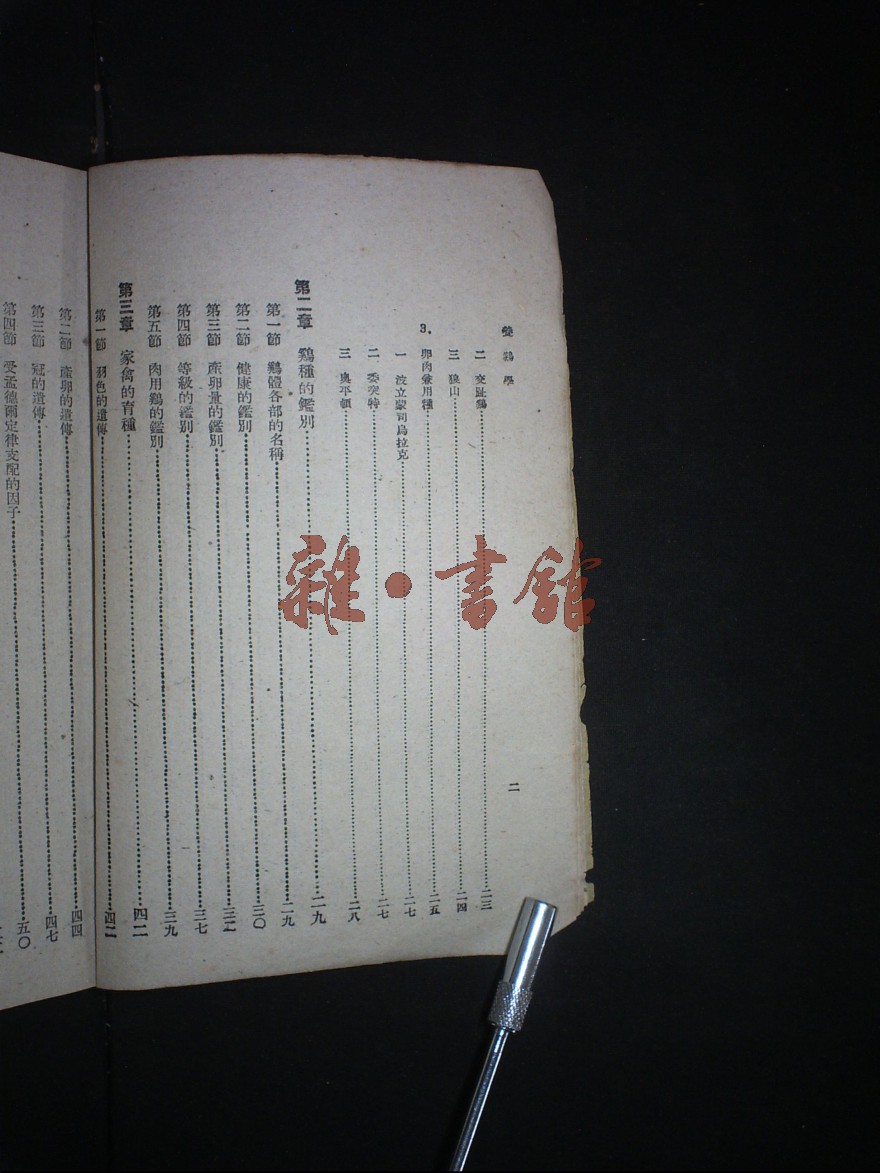 養鷄學
二
二 交趾鷄 二三
三 狼山 二四
3. 卵肉兼用種 二五
一 波立蒙司烏拉克 二七
二 委突特 二七
三 奧平頓 二八
第二章 鷄種的鑑別 二九
第一節 鷄體各部的名稱 二九
第二節 健康的鑑別 三〇
第三節 產卵量的鑑別 三二
第四節 等級的鑑別 三七
第五節 肉用鷄的鑑別 三九
第三章 家禽的育種 四二
第一節 羽色的遺傳 四二
第二節 產卵的遺傳 四四
第三節 冠的遺傳 四七
第四節 受孟德爾定律支配的因子 五〇
雜·書館